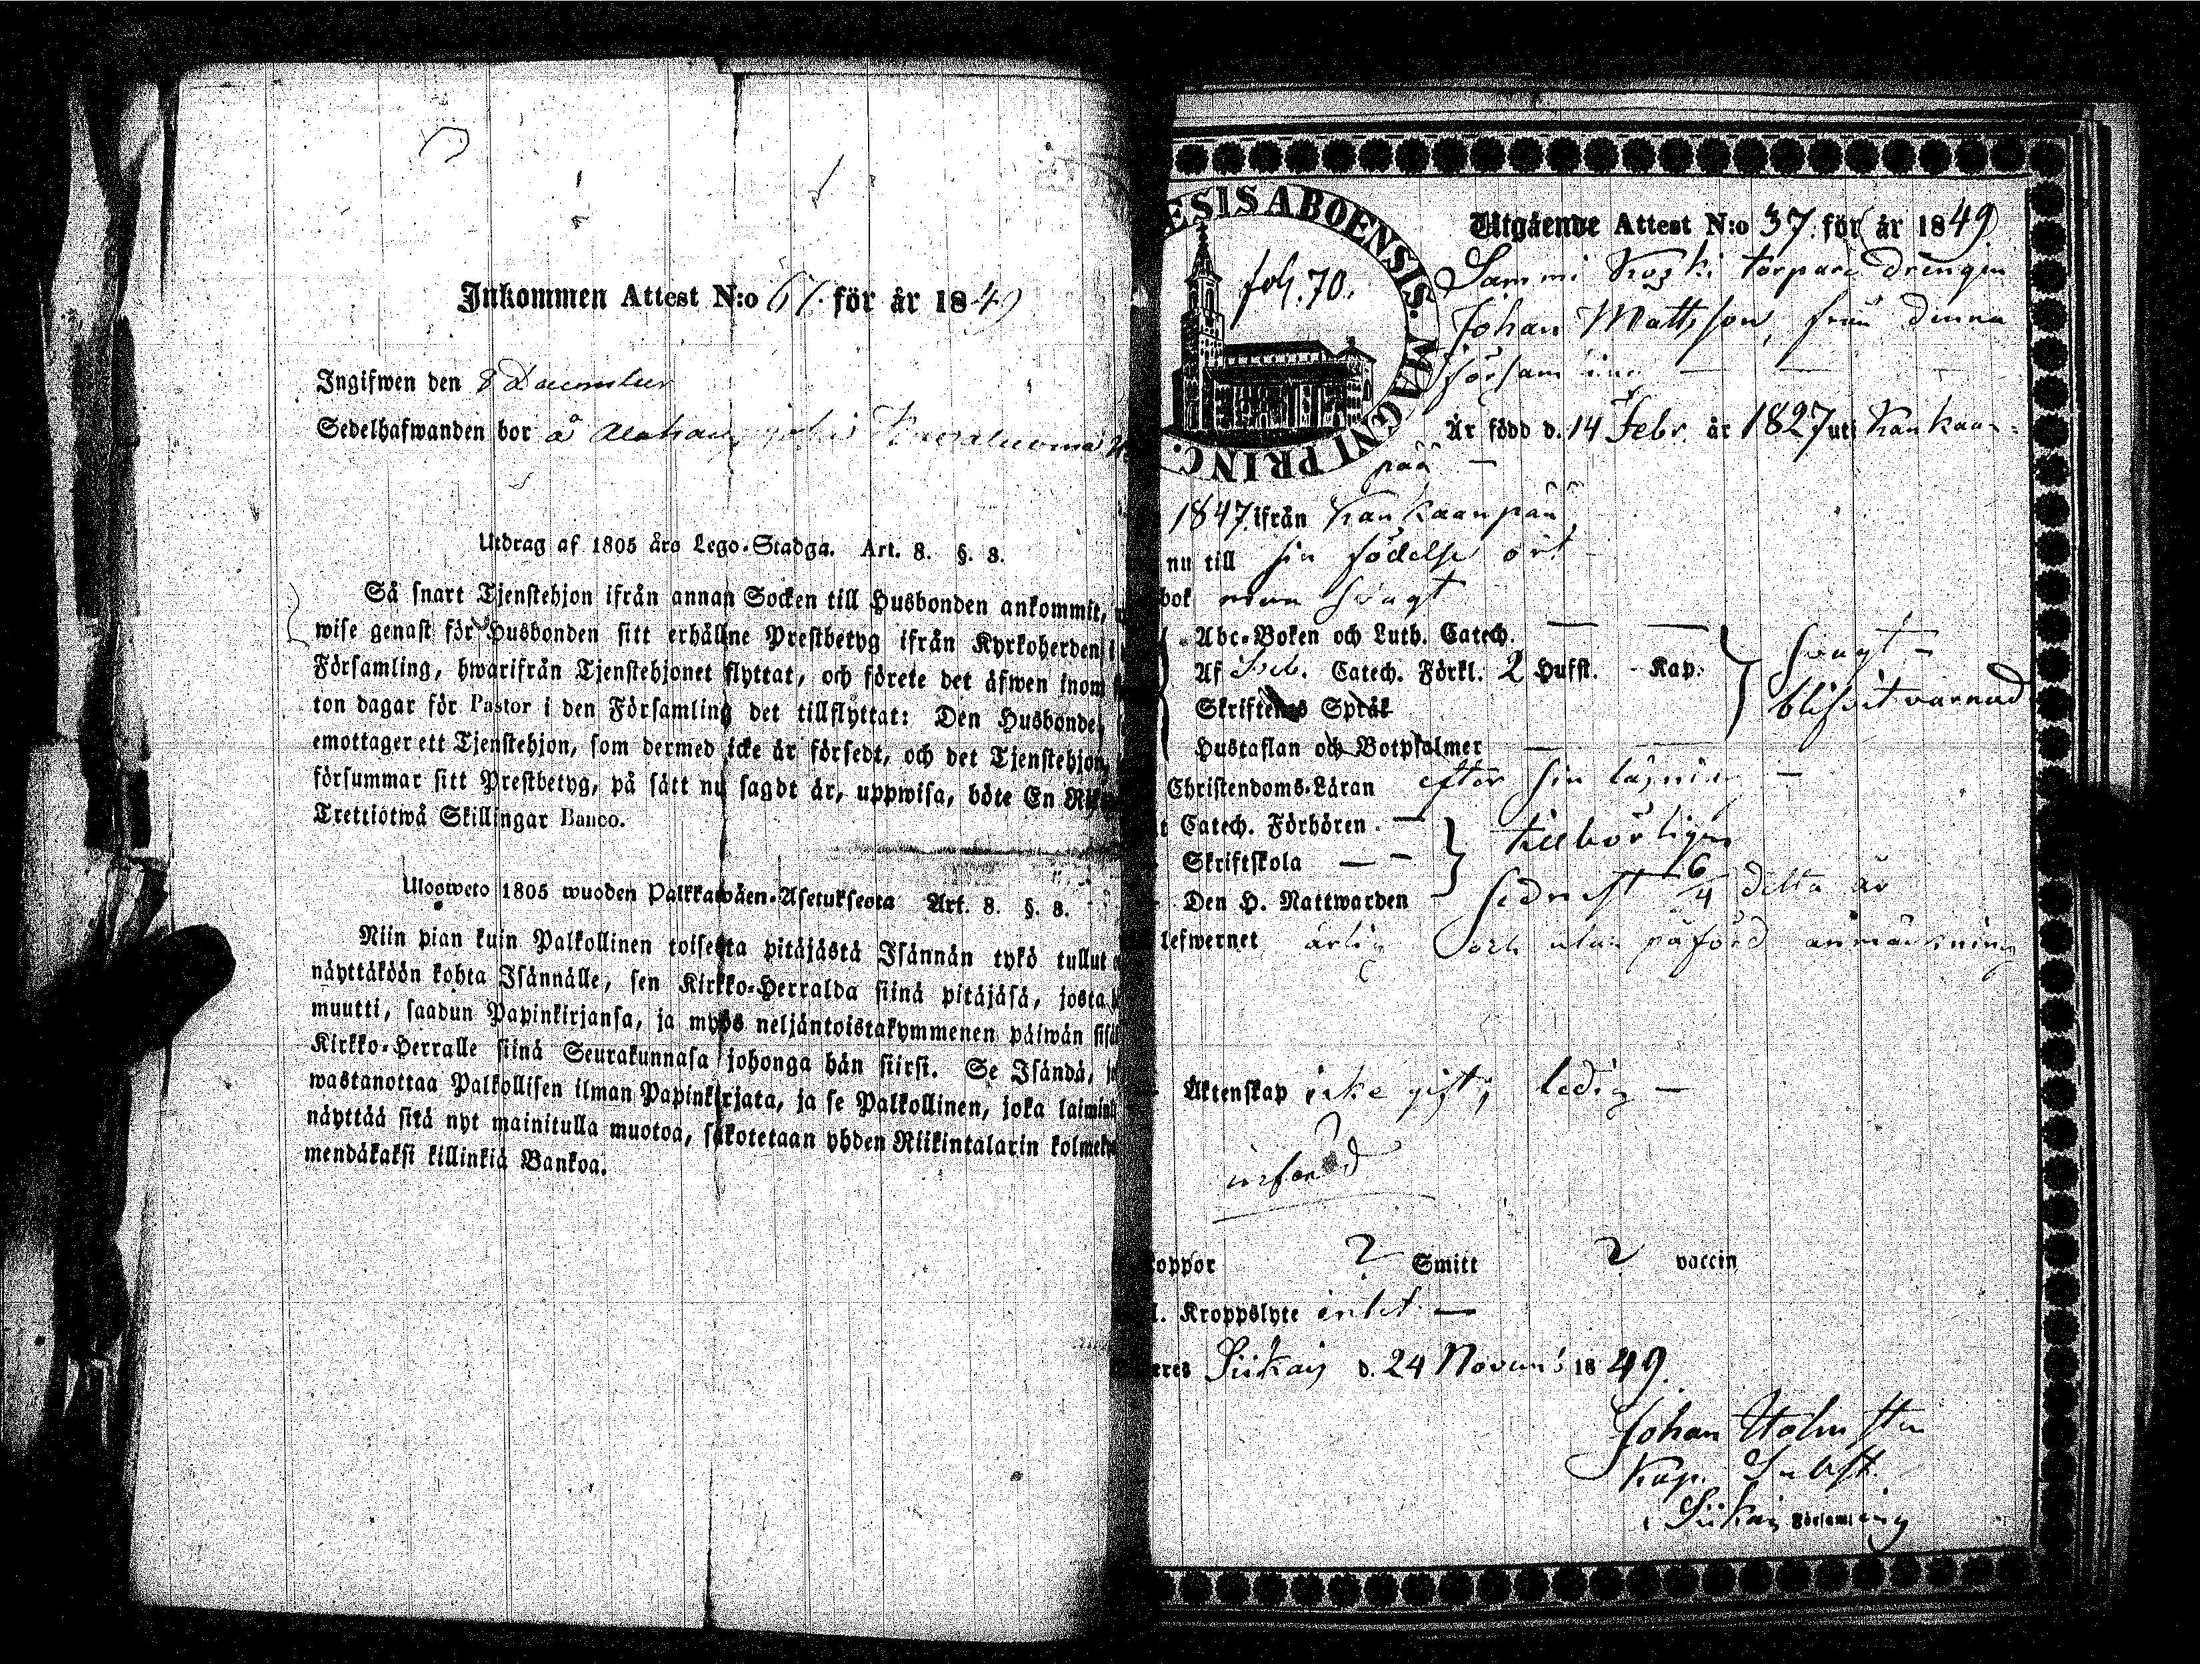 Inkommen Attest N:o 61. för år 1849
Ingifwen den 8 December
Sedelhafwanden bor å
Utdrag af 1805 års Lego-Stadga. Art. 8. §. 3.
Så snart Tjenstehjon ifrån annan Socken till Husbonden ankommit,
wise genast för Husbonden sitt erhållne Prestbetyg ifrån Kyrkoherden i
Församling, hwarifrån Tjenstehjonet flyttat, och förete det äfwen inom
ton dagar för Pastor i den Församling det tillflyttat: Den Husbonde,
emottager ett Tjenstehjon, som dermed icke är försedt, och det Tjenstehjon,
försummar sitt Prestbetyg, på sätt nu sagdt är, uppwisa, böte En
Trettiotwå Skillingar Banco.
Ulosweto 1805 wuoden Palkkawäen-Asetuksesta Art. 8. §. 3.
Niin pian kuin Palkollinen toisesta pitäjästä Isännän tykö tullut
näyttäköön kohta Isännälle, sen Kirkko-Herralda siinä pitäjäsä, josta
muutti, saadun Papinkirjansa, ja myös neljäntoistakymmenen päiwän
Kirkko-Herralle siinä Seurakunnasa johonga hän siirsi. Se Isändä,
wastanottaa Palkollisen ilman Papinkirjata, ja se Palkollinen, joka
näyttää sitä nyt mainitulla muotoa, sakotetaan yhden Riikintalarin
mendäkaksi killinkiä Bankoa.
ESIS ABOENSIS. MAGNI PRINC.
fol. 70.
Utgående Attest N:o 37. för år 1849
Sammi Koski torpare drengen
Johan Mattsson, från denna
församling
Är född d. 14 Febr. år 1827 uti Kankaan-
pää
1847. ifrån Kankaanpää,
nu till sin födelse ort
bok svagt
Abc-Boken och Luth. Catech.
svagt
Af Catech. Förkl. 2 Hufst. Kap.
blifvit varnad
Skriftenes Språk
Hustaflan och Botpsalmer
Christendoms-Läran efter sin läsning
Catech. Förhören
tillbörligen
Skriftskola
Den H. Nattwarden sednast 16/4 detta år
lefwernet ärlig och utan påförd anmärkning
Äktenskap icke gift, ledig
?
? Smitt ? vaccin
Kroppslyte intet
Siikais d. 24 Novem: 1849.
Johan Holmsten
Kap. Subst.
i Siikais Församling